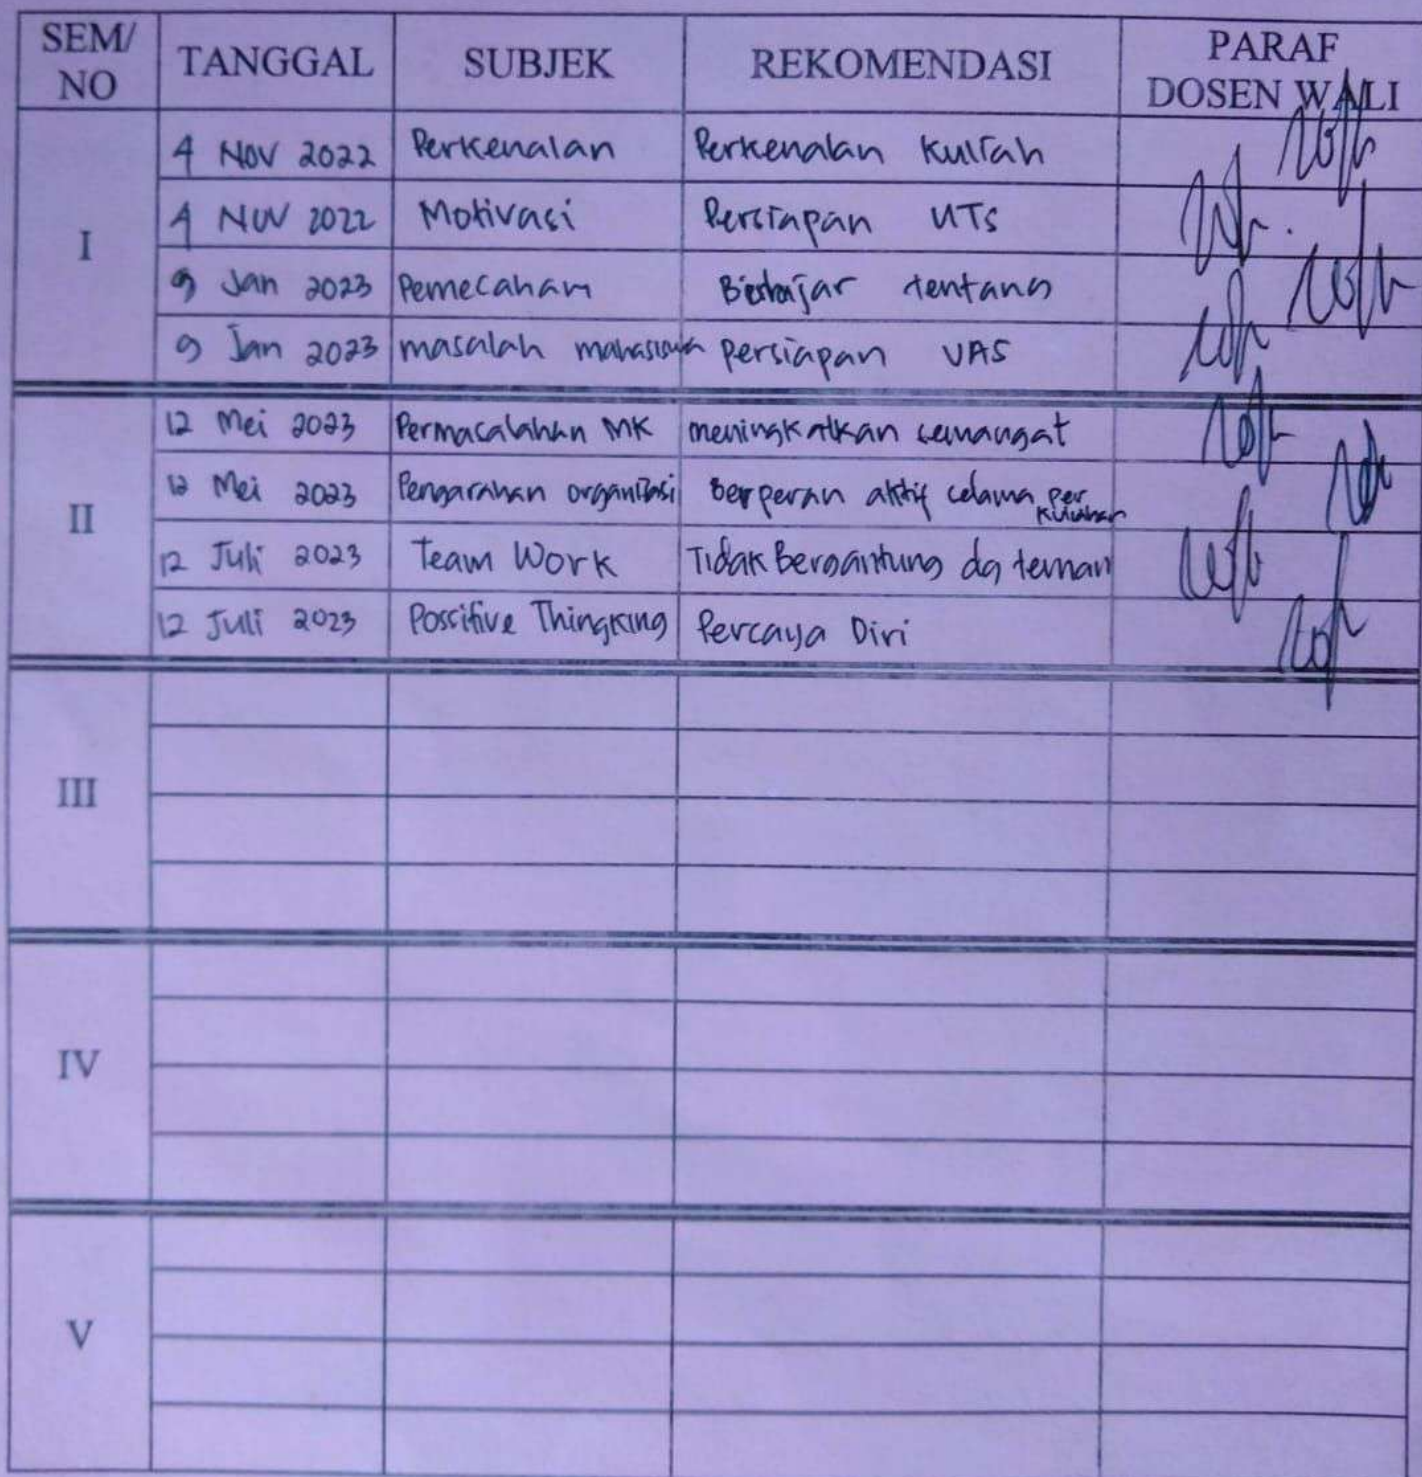 SEM/ NO TANGGAL SUBJEK REKOMENDASI PARAF DOSEN WALI
I
4 Nov 2022 Perkenalan Perkenalan Kuliah
4 Nov 2022 Motivasi Persiapan UTS
9 Jan 2023 Pemecahan tentang
9 Jan 2023 masalah mahasiswa persiapan UAS
II
12 Mei 2023 Permasalahan MK meningkatkan semangat
12 Mei 2023 Pengarahan organisasi Berperan aktif selama per kuliahan
12 Juli 2023 Team Work Tidak Bergantung dg teman
12 Juli 2023 Possitive Thingking Percaya Diri
III
IV
V